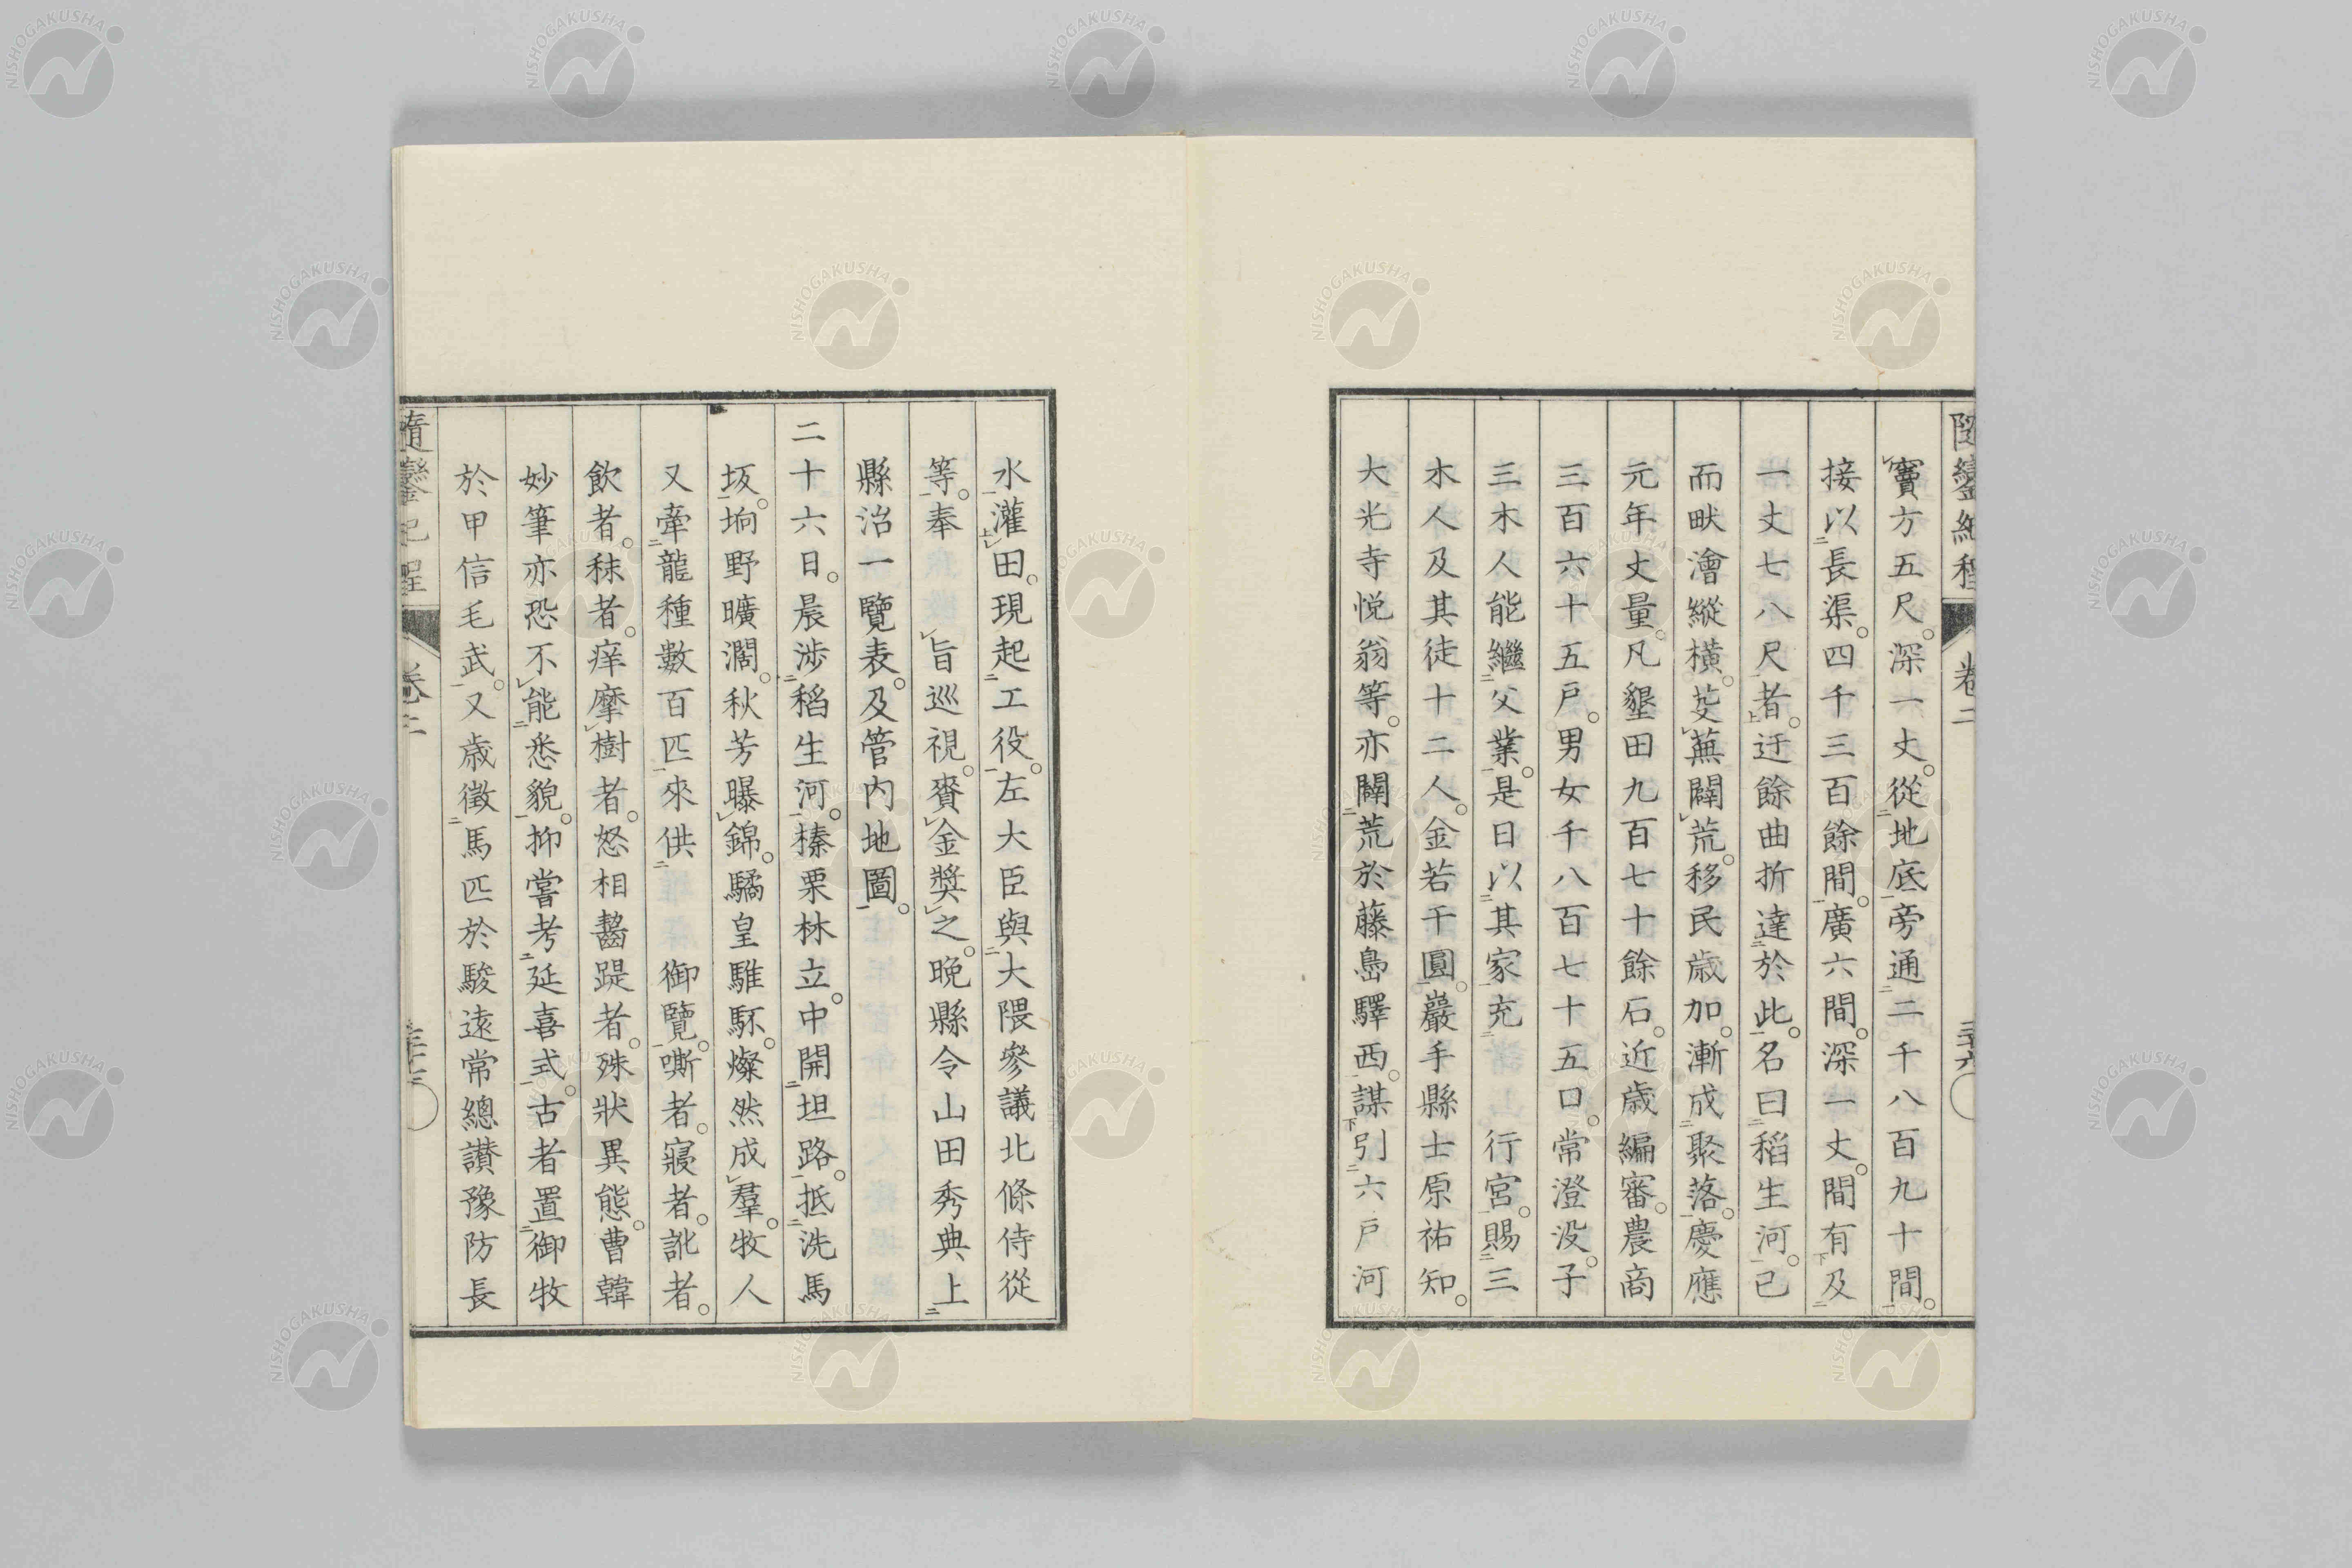 隨鑾紀程 卷二 三十六
竇方五尺。深一丈。從二地底一旁通二二千八百九十間一。
接以二長渠。四千三百餘間一。廣六間。深一丈。間有下及二
一丈七八尺一者上。迂餘曲折達二於此一。名曰二稻生河一。已
而畎澮縱橫。芟レ蕪闢レ荒。移民歳加。漸成二聚落一。慶應
元年丈量。凡墾田九百七十餘石。近歳編審。農商
三百六十五戸。男女千八百七十五口。常澄没。子
三木人能繼二父業一。是日以二其家一充二 行宮一。賜二三
木人及其徒十二人。金若干圓一。巖手縣士原祐知。
大光寺悦翁等。亦闢二荒於藤島驛西一。謀下引二六戸河
水一灌上レ田。現起二工役一。左大臣與二大隈參議北條侍從
等一。奉 レ旨巡視。賚レ金奬レ之。晩縣令山田秀典上二
縣治一覽表。及管内地圖一。
二十六日。晨渉二稻生河一。榛栗林立。中開二坦路一。抵二洗馬
坂一。坰野曠濶。秋芳曝レ錦。驈皇騅駓。燦然成レ羣。牧人
又牽二龍種數百匹一來供二 御覽一。嘶者。寢者。訛者。
飮者。秣者。痒摩レ樹者。怒相齧踶者。殊狀異態。曹韓
妙筆亦恐不レ能二悉貌一。抑嘗考二延喜式一。古者置二御牧
於甲信毛武一。又歳徵二馬匹於駿遠常總讃豫防長
隨鑾紀程 卷二